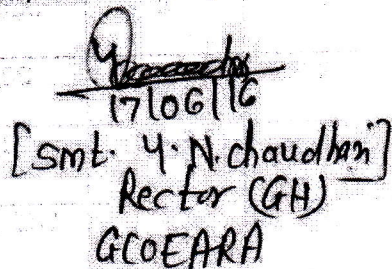 17/06/16
[Smt. Y. N. chaudhari]
Rector (GH)
GCOEARA